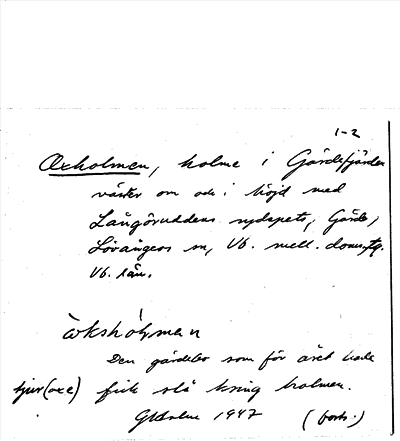 1-2
Oxholmen, holme i Gärdefjärden
väster om och i höjd med
Långöruddens sydspets, Gärde,
Lövångers sn, Vb. mell. doms.,
Vb. län.
Den gårdsbo som för året hade
tjur (oxe) fick slå kring holmen.
GHolm 1947 (forts.)